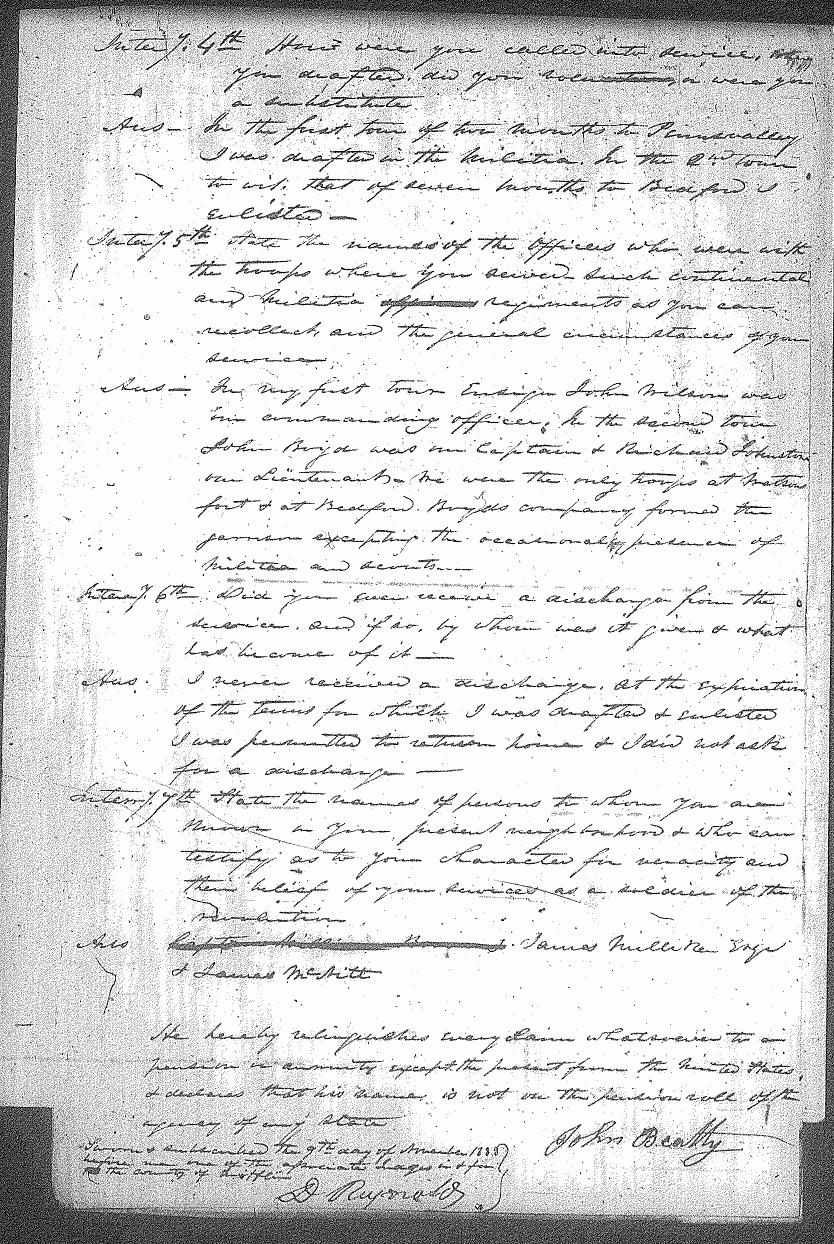 Interry. 4th How were you called into service, were
you drafted, did you volunteer, or were you
a substitute
Ans — In the first tour of two months to Pennsvalley
I was drafted in the Militia. In the 2nd tour
to wit, that of seven months to Bedford I
enlisted —
Interry. 5th State the names of the officers who were with
the troops where you served such continental
and Militia regiments as you can
recollect, and the general circumstances of your
service
Ans — In my first tour Ensign John Wilson was
our commanding officer. In the second tour
John Boyd was our Captain & Richard Johnston
our Lieutenant. We were the only troops at Watsons
fort & at Bedford. Boyds company formed the
garrison excepting the occasional presence of
Militia and scouts —
Interry. 6th Did you ever receive a discharge from the
service, and if so, by whom was it given & what
has become of it —
Ans. I never received a discharge. At the expiration
of the terms for which I was drafted & enlisted
I was permitted to return home & I did not ask
for a discharge —
Interry. 7th State the names of persons to whom you are
known in your present neighborhood & who can
testify as to your character for veracity and
their belief of your services as a soldier of the
revolution
Ans James Milliken Esqr
& James McNitt
He hereby relinquishes every claim whatsoever to a
pension or annuity except the present from the United States
& declares that his name is not on the pension roll of the
agency of any state
John Beatty
Sworn & subscribed the 9th day of November 1833
before me one of the associate Judges in & for
the county of Mifflin
D Reynolds